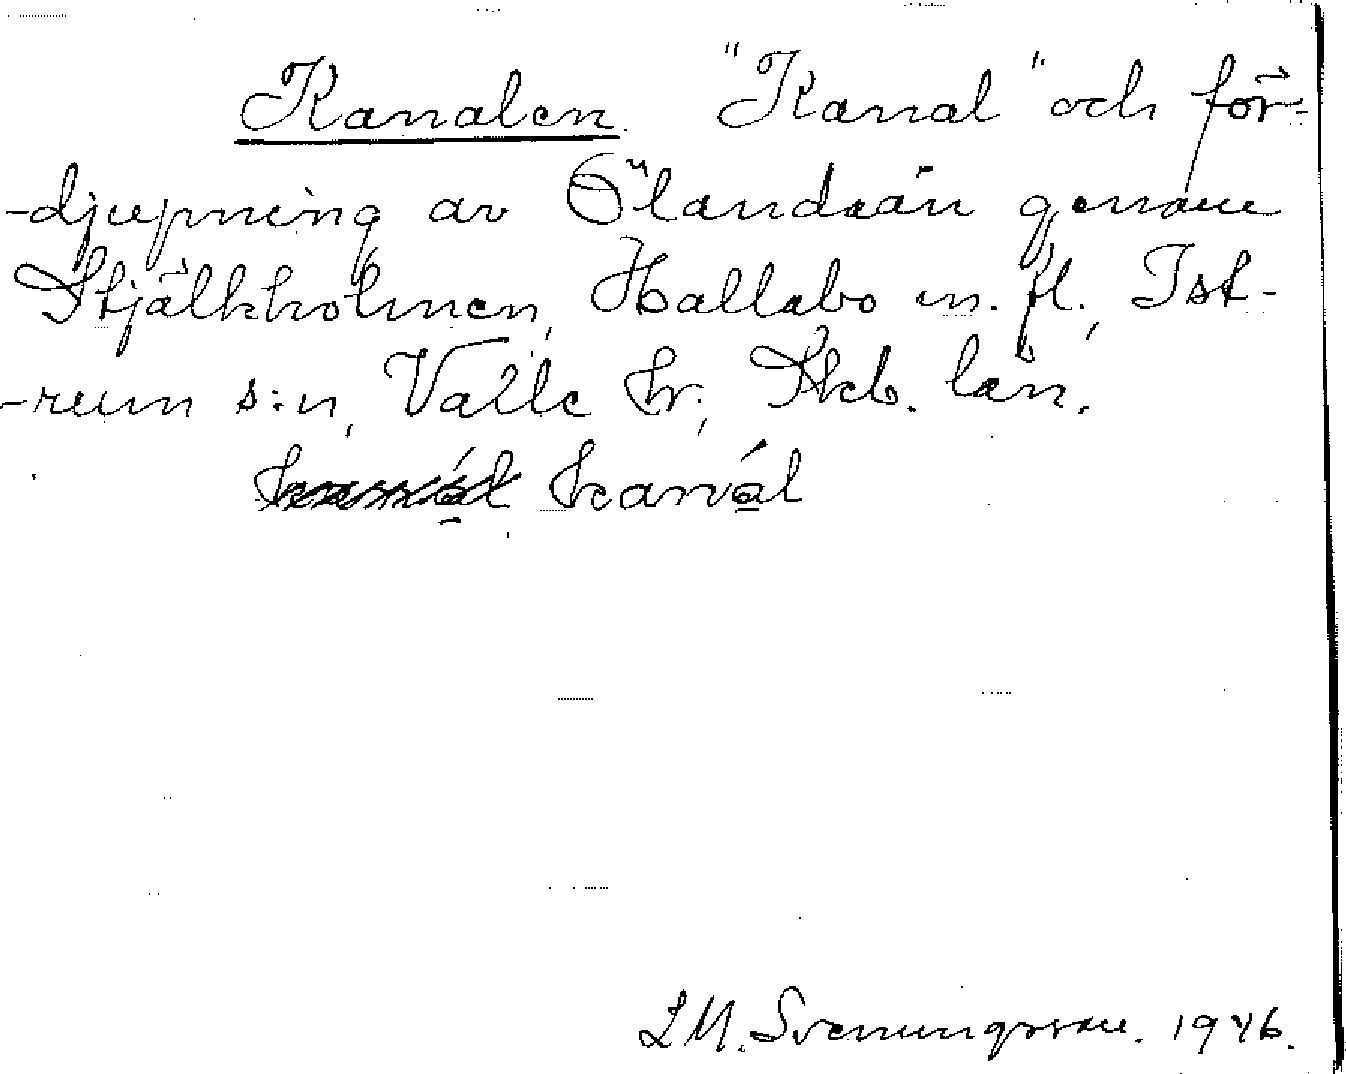 Kanalen. "Kanal" och för-
-djupning av Ölandsån genom
Stjälkholmen, Hallabo m. fl., Ist-
-rum s:n, Valle hr., Skb. län.
kanál
L M. Svenungsson. 1946.